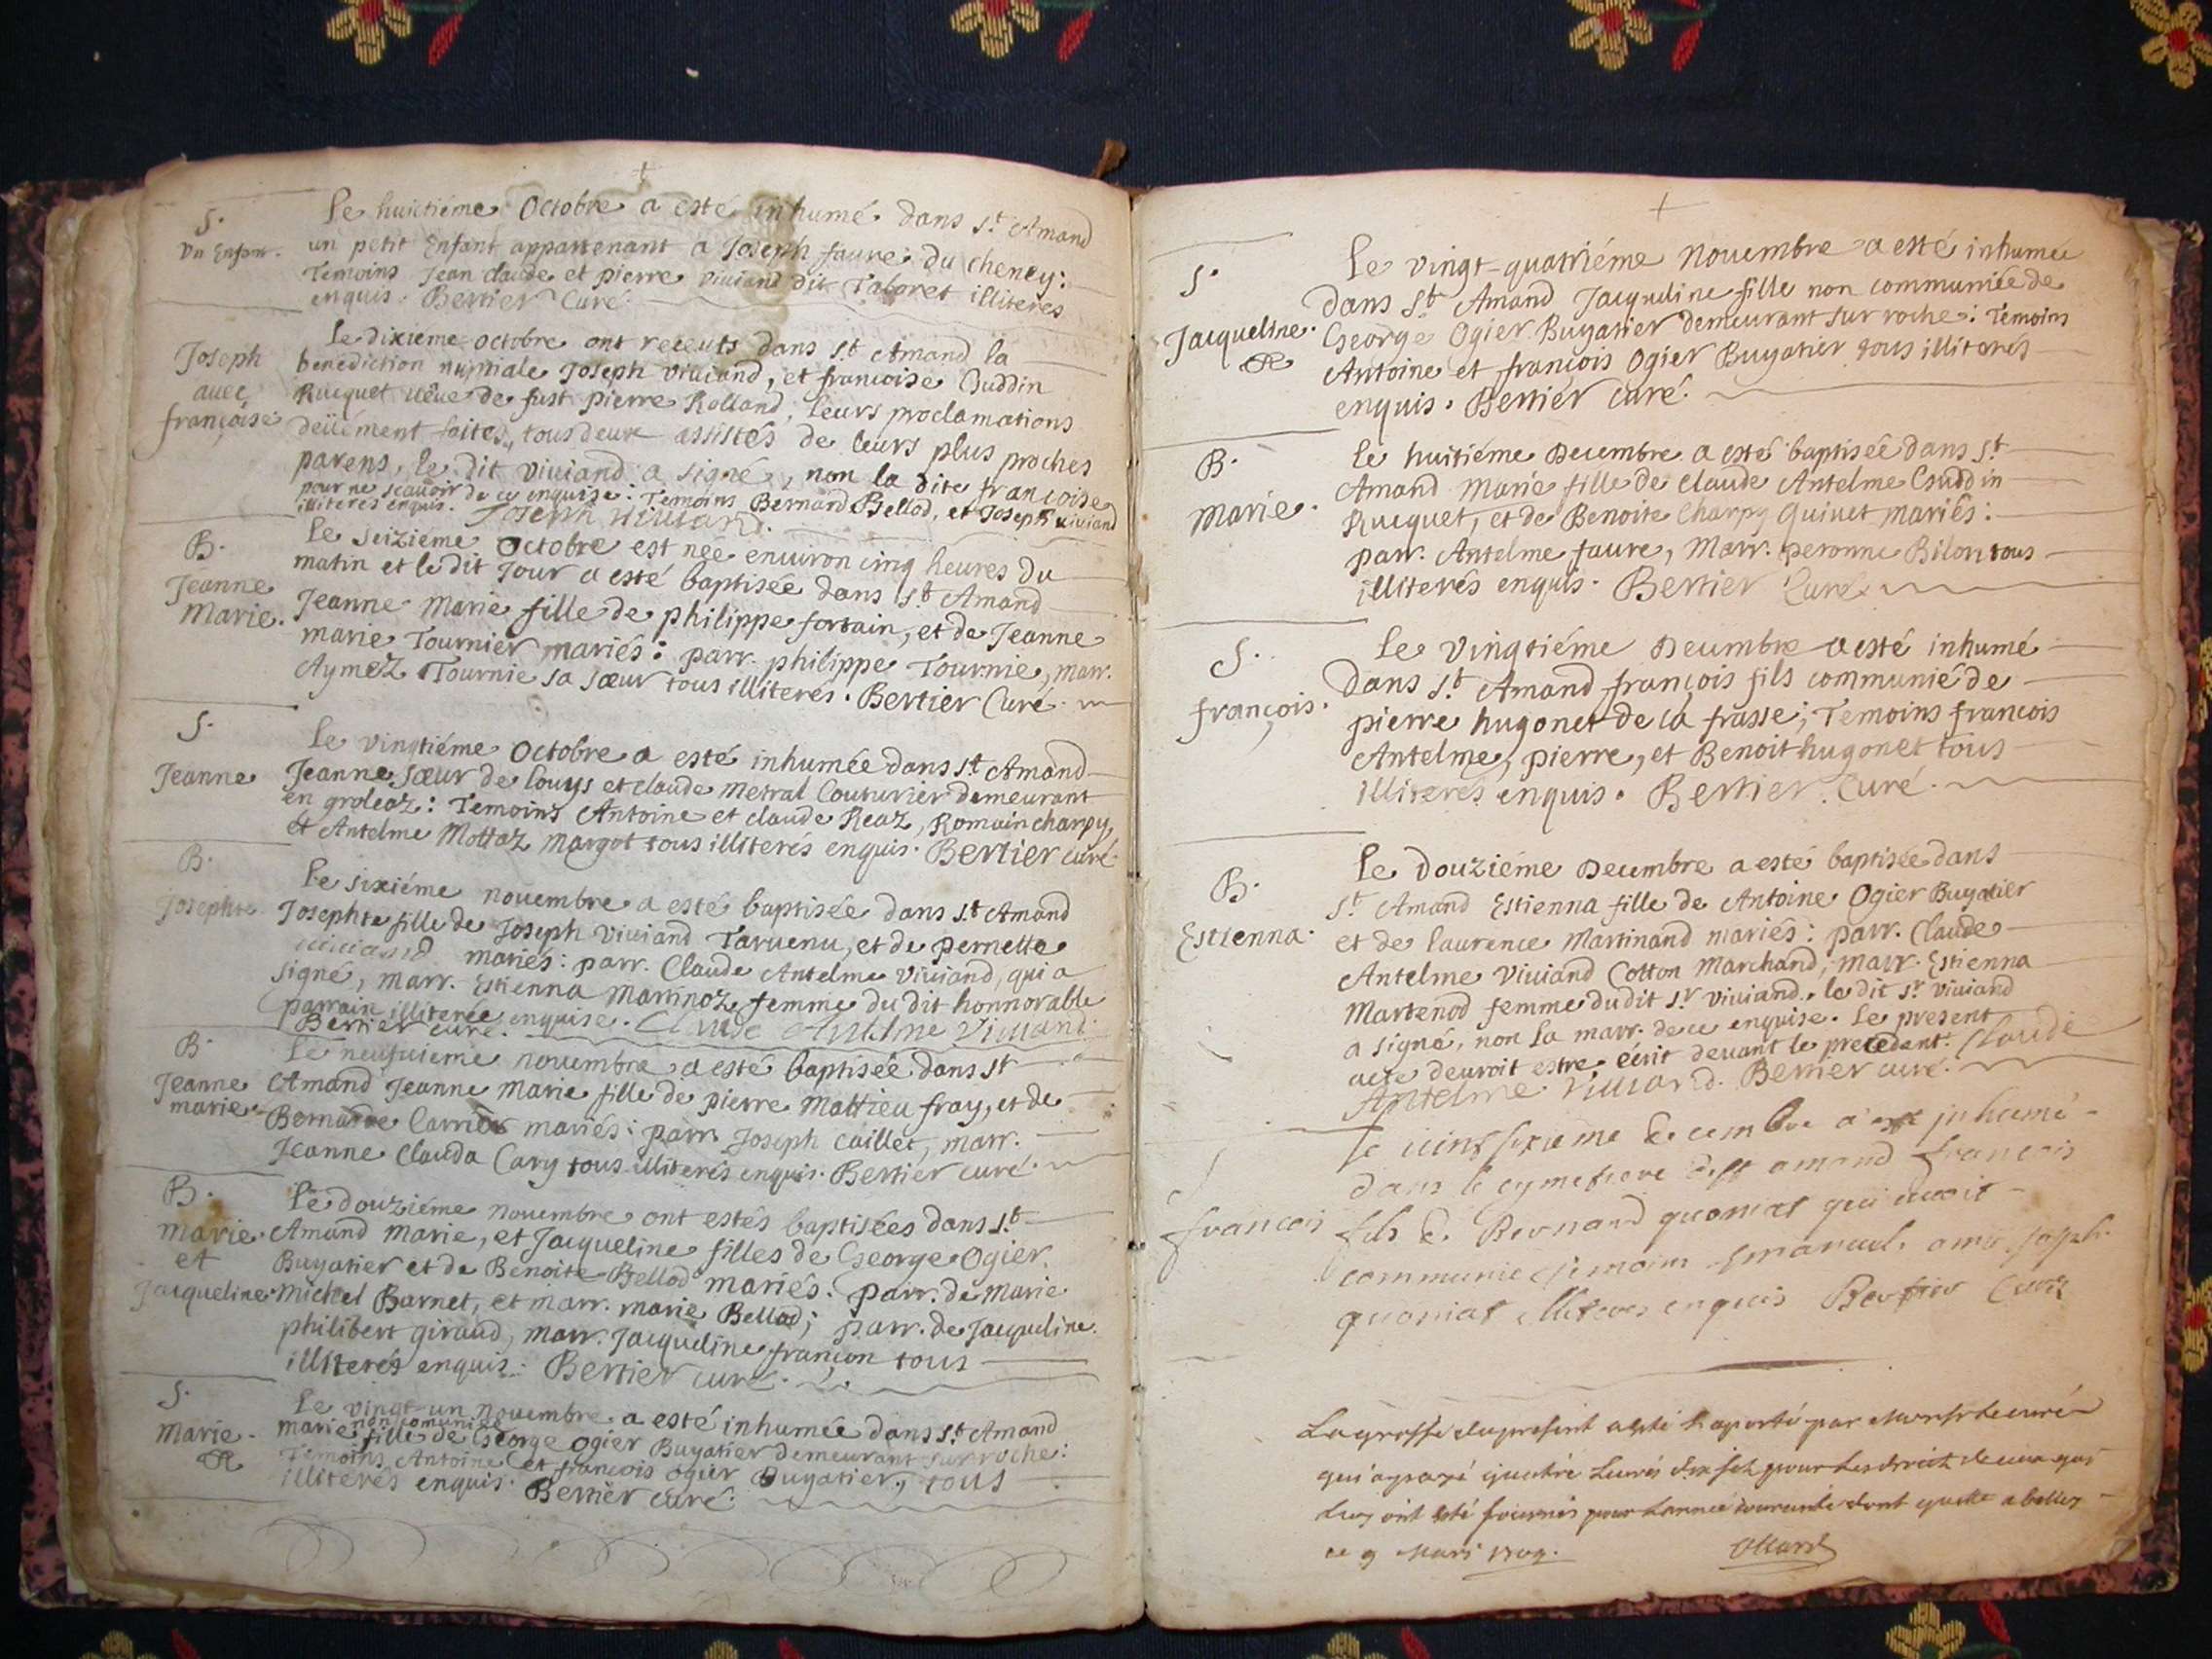 +
S.
Un Enfant.
Le huictiéme Octobre a esté inhumé dans St Amand
un petit Enfant appartenant a Joseph faure du cheney:
Temoins Jean claude et pierre viuiand dit Taboret illiterés
enquis. Bertier Curé.
Joseph
auec
françoise
Le dixieme octobre ont receuts dans St Amand la
benediction nuptiale Joseph viuiand, et francoise Guddin
Rucquet veuue de fust pierre Rolland, leurs proclamations
deüement faites, tous deux assistés de leurs plus proches
parens, le dit viuiand a signé, non la dite francoise
pour ne scauoir de ce enquise: Temoins Bernard Bellod, et Joseph viuiand
illiterés enquis. Joseph viuiand.
B.
Jeanne
Marie.
Le seizieme Octobre est née enuiron cinq heures du
matin et le dit Jour a esté baptisée dans St Amand
Jeanne Marie fille de philippe fortain, et de Jeanne
marie Tournier mariés: parr. philippe Tournie, marr.
Aymez Tournie sa sœur tous illiterés. Bertier Curé.
S.
Jeanne
Le vingtiéme Octobre a esté inhumée dans St Amand
Jeanne sœur de Louys et claude Metral Couturier demeurant
en groleaz: Temoins Antoine et claude Reaz, Romain charpy,
et Antelme Mottaz Margot tous illiterés enquis. Bertier curé.
B.
Josephte
Le sixiéme nouembre a esté baptisée dans St Amand
Josephte fille de Joseph viuiand Taruenu, et de pernette
viuiand mariés: parr. Claude Antelme viuiand, qui a
signé, marr. Estienna Martinoz femme du dit honnorable
parrain illiterée enquise. Claude Antelme Viuiand.
Bertier curé.
B.
Jeanne
marie
Le neufuieme nouembre a esté baptisée dans St
Amand Jeanne Marie fille de pierre Mattieu fray, et de
Bernarde Carrier mariés: parr. Joseph caillet, marr.
Jeanne Clauda Cary tous illiterés enquis. Bertier curé.
B.
Marie
et
Jacqueline
Le douziéme nouembre ont estés baptisées dans St
Amand Marie, et Jacqueline filles de George Ogier
Bugatier et de Benoite Bellod mariés. parr. de Marie
Michel Barnet, et marr. marie Bellod; parr. de Jacqueline
philibert giraud, marr. Jacqueline françon tous
illiterés enquis. Bertier curé.
S.
Marie.
Le vingt-un Nouembre a esté inhumée dans St Amand
non comuniée
marie fille de George Ogier Bugatier demeurant sur roche:
Temoins Antoine et francois ogier Bugatier, tous
illiterés enquis. Bertier curé.
+
S.
Jacqueline.
Le vingt-quatriéme Nouembre a esté inhumée
dans St Amand Jacqueline fille non communiée de
George Ogier Bugatier demeurant sur roche: Temoins
Antoine et francois Ogier Bugatier tous illiterés
enquis. Bertier curé.
B.
Marie.
Le huitiéme Decembre a esté baptisée dans St
Amand Marie fille de claude Antelme Guddin
Rucquet, et de Benoite Charpy Quiuet mariés:
parr. Antelme faure, Marr. peronne Bilon tous
illiterés enquis. Bertier Curé.
S.
françois.
Le vingtiéme Decembre a esté inhumé
dans St Amand françois fils communié de
pierre hugonet de la frasse; Temoins francois
Antelme, pierre, et Benoit hugonet tous
illiterés enquis. Bertier Curé.
B.
Estienna.
Le douziéme Decembre a esté baptisée dans
St Amand Estienna fille de Antoine Ogier Bugatier
et de laurence Martinand mariés: parr. Claude
Antelme viuiand Cotton Marchand, marr. Estienna
Martenod femme dudit Sr viuiand. le dit Sr viuiand
a signé, non la marr. de ce enquise. Le present
acte deuroit estre écrit deuant le precedent. Claude
Antelme Viuiand. Bertier curé.
S
francois
Le vint sixieme decembre a este inhumé
dans le cymetiere de St amand francois
fils de Bernard quoniat qui auoit
communie temoins Emanuel, Joseph
quoniat illiteres enquis Bertier Curé
La grosse du present a esté raporté par Monsr le curé
qui a payé quatre Liures dix sols pour les droits de ceux qui
Luy ont esté fournis pour Lannée courante dont quitte a belley
ce 9 Mars 1709.